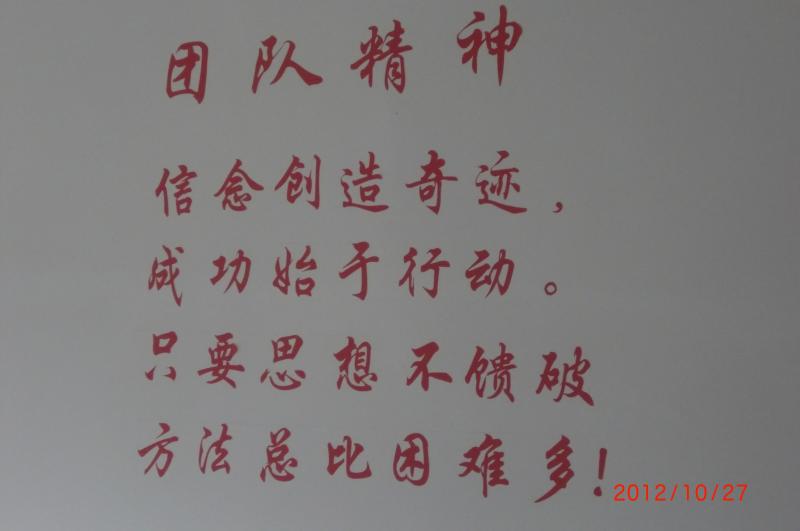 团队精神
信念创造奇迹，
成功始于行动。
只要思想不馈破
方法总比困难多！
2012/10/27